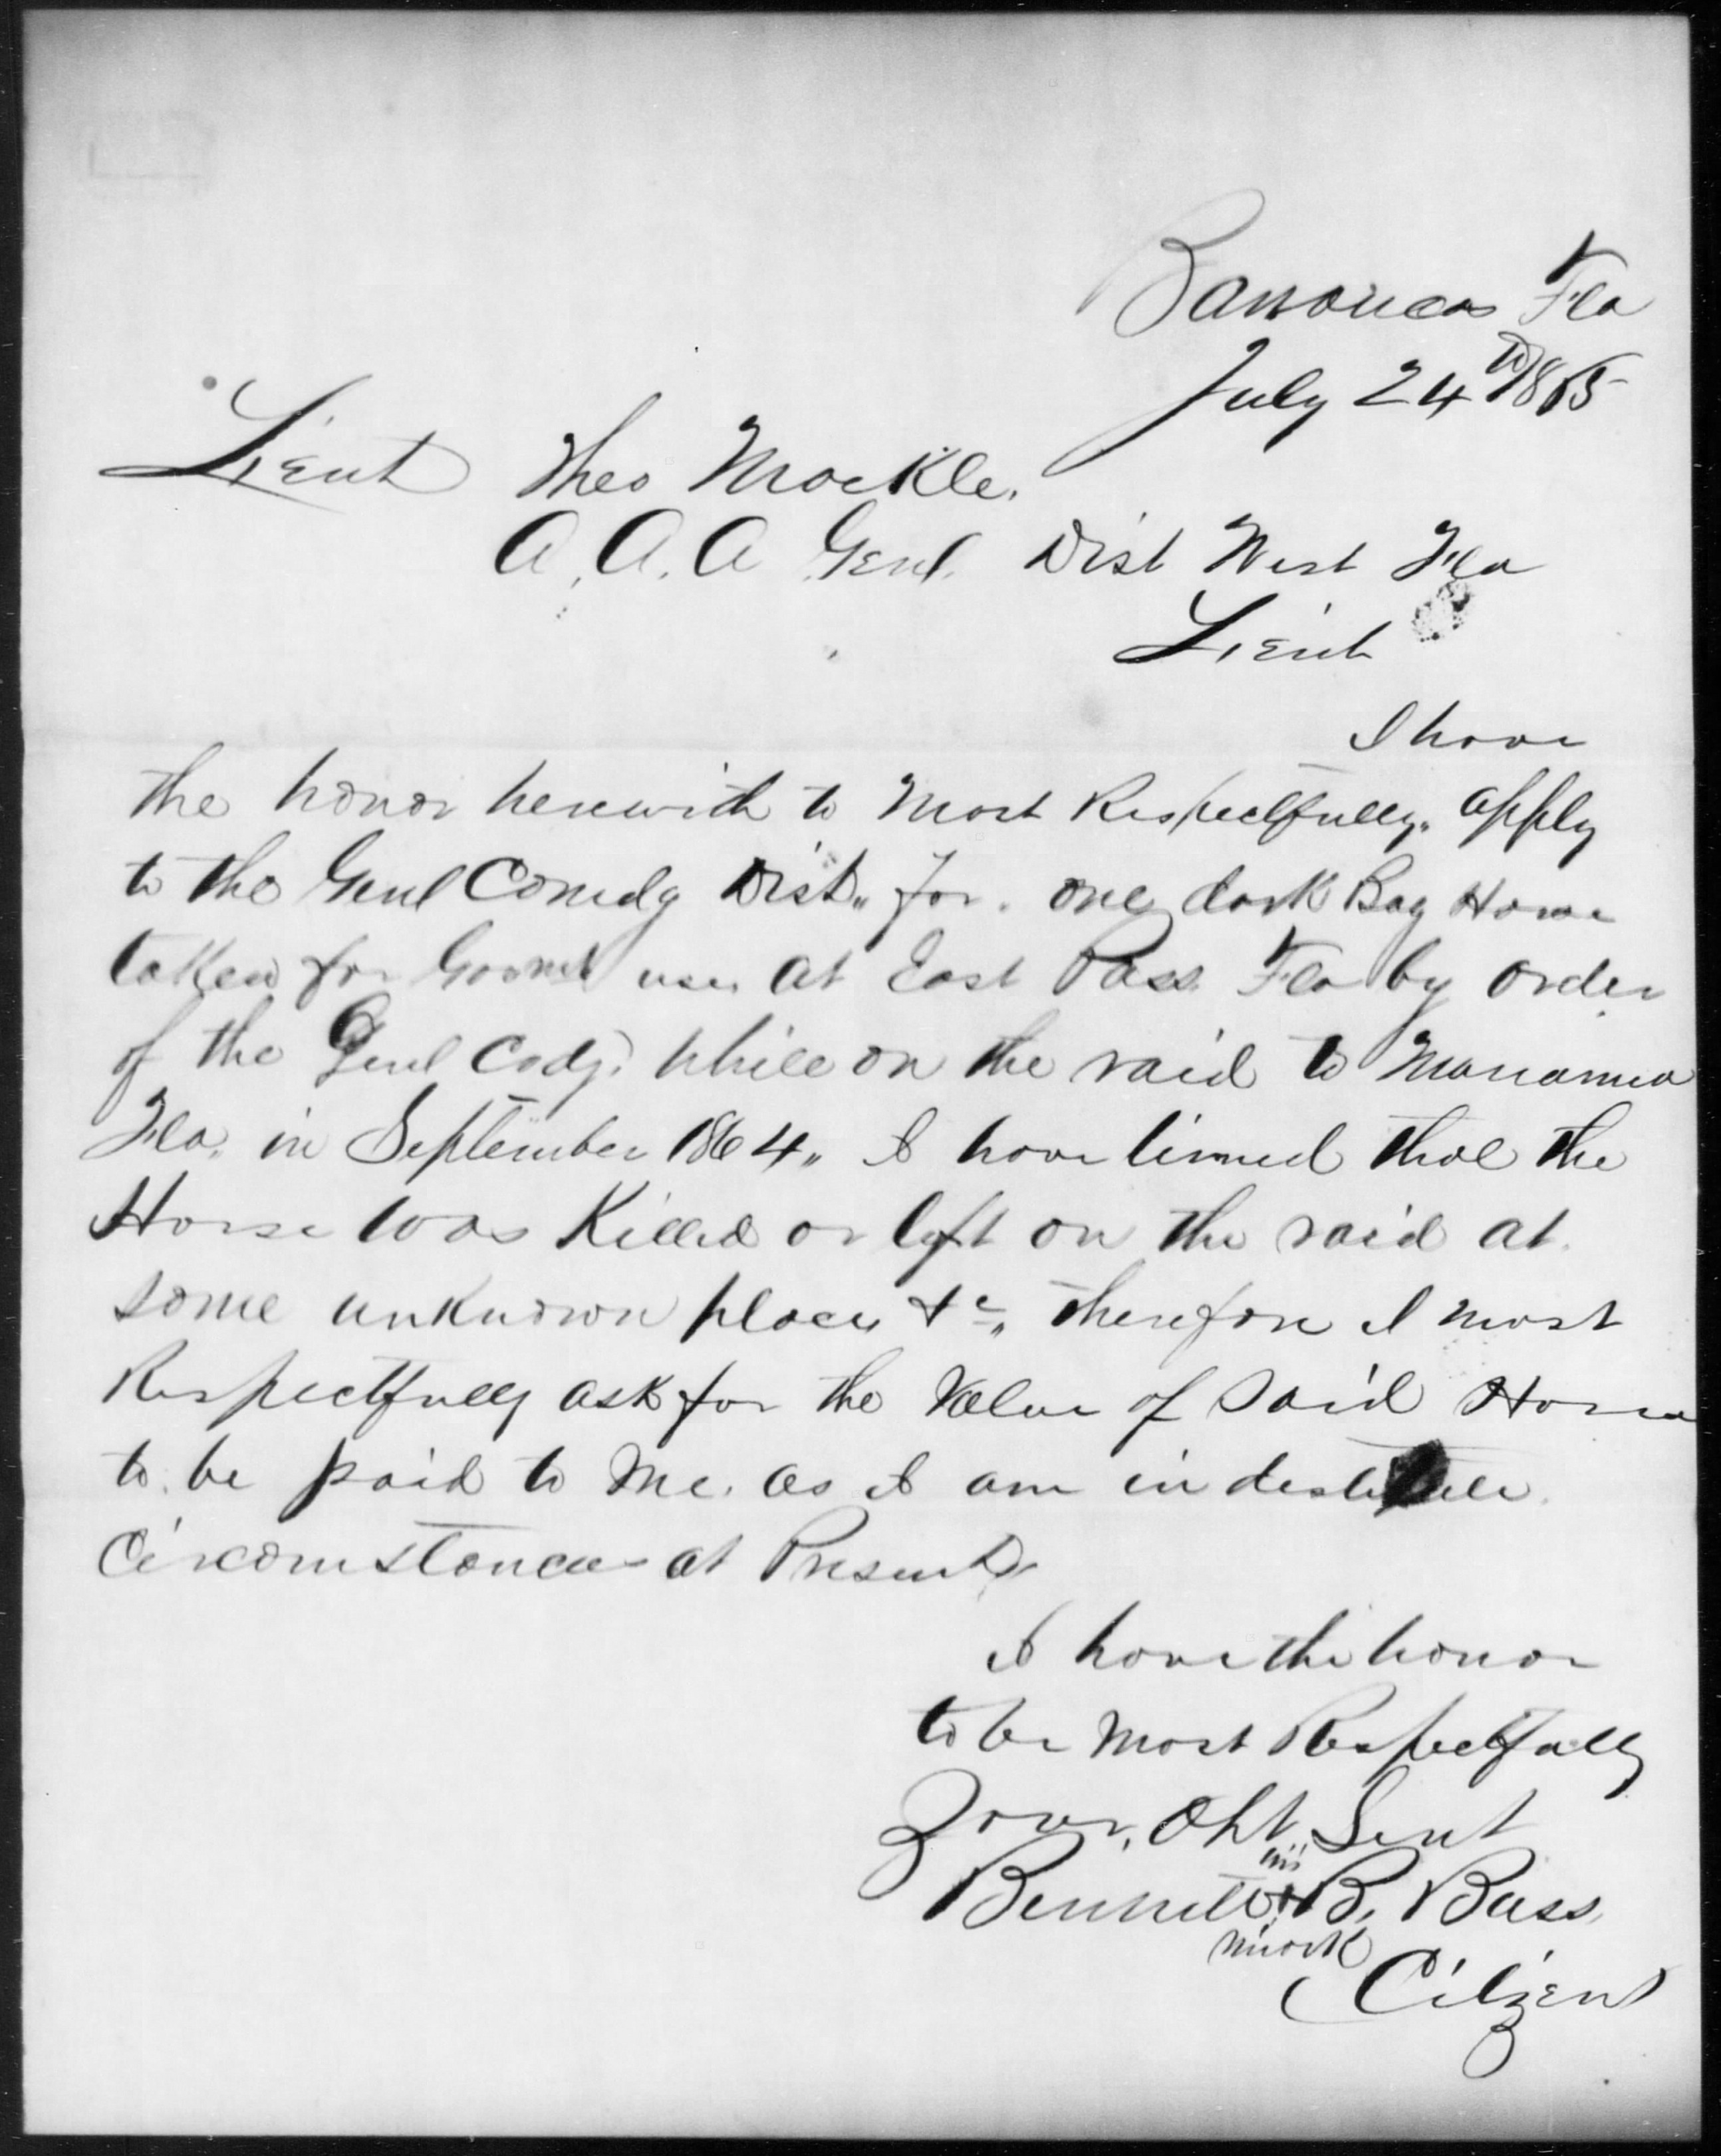 Barrancas Fla
July 24th 1865
Lieut Theo Mockle.
A. A. A Genl. Dist West Fla
Lieut
I have
the honor herewith to Most Respectfully. apply
to the Genl Comdg Dist" for. one dark Bay Horse
taken for Govmt use at East Pass Fla by order
of the Genl Codg. While on the raid to Marianna
Fla. in September 1864" I have lirned that the
Horse was Killed or left on the raid at
some unknown place &c" therefore I most
Respectfully ask for the Value of Said Horse
to be paid to Me. as I am in destitute
Circomstances at Present
I have the honor
to be Most Respectfully
Your. Obt Sevt
his
Bennett x B. Bass
mark
Citizen